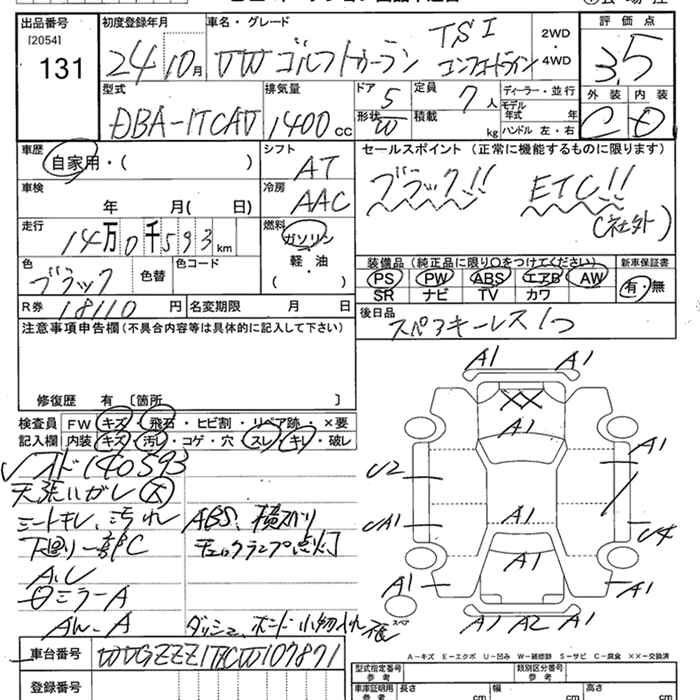 出品番号 [2054] 131
初度登録年月 24 10月
車名・グレード VW ゴルフトゥーラン TSI コンフォートライン
2WD・4WD
評価点 3.5
外装 C 内装 D
型式 DBA-1TCAV
排気量 1400 cc
ドア 5 形状 W
定員 7人 積載 kg
ディーラー・並行
モデル年式 年
ハンドル 左・右
車歴 自家用・( )
シフト AT
セールスポイント (正常に機能するものに限ります)
ブラック!! ETC!! (社外)
車検 年 月( 日)
冷房 AAC
走行 14万0千593km
燃料 ガソリン・軽・油 ( )
色 ブラック 色替 色コード
装備品(純正品に限り○をつけてください)
PS PW ABS エアB AW
SR ナビ TV カワ
新車保証書 有・無
R券 18110 円 名変期限 月 日
後日品 スペアキーレス1つ
注意事項申告欄(不具合内容等は具体的に記入して下さい)
修復歴 有 [箇所 ]
検査員記入欄
FW キズ・飛石・ヒビ割・リペア跡・×要
内装 キズ・汚レ・コゲ・穴・スレ・キレ・破レ
メーター 140593
天張ハガレ 大
シートキレ、汚れ ABS、横スベリ
下廻り一部C チェックランプ点灯
ミラーA
ダッシュ、ボンド小物入れ
車台番号 WVGZZZ1TZCW107871
登録番号
A1 A1
A1
A1
U2
UA1
A1
U4
A1
A1
A1
A1 A2 A1
スペア
A－キズ E－エクボ U－凹み W－補修跡 S－サビ C－腐食 ××－交換済
型式指定番号 参考
類別区分番号 参考
車庫証明用参考 長さ cm 幅 cm 高さ cm